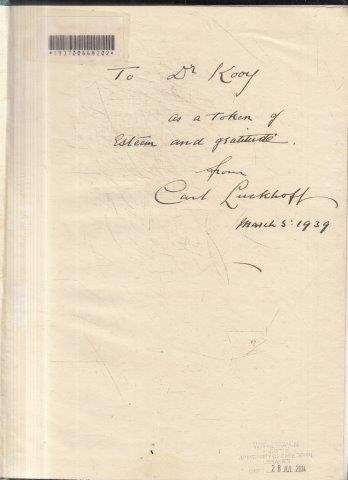 To Dr Kooy
as a token of
Esteem and gratitude.
from
Carl Luckhoff
March 5: 1939
28 JUL 2004